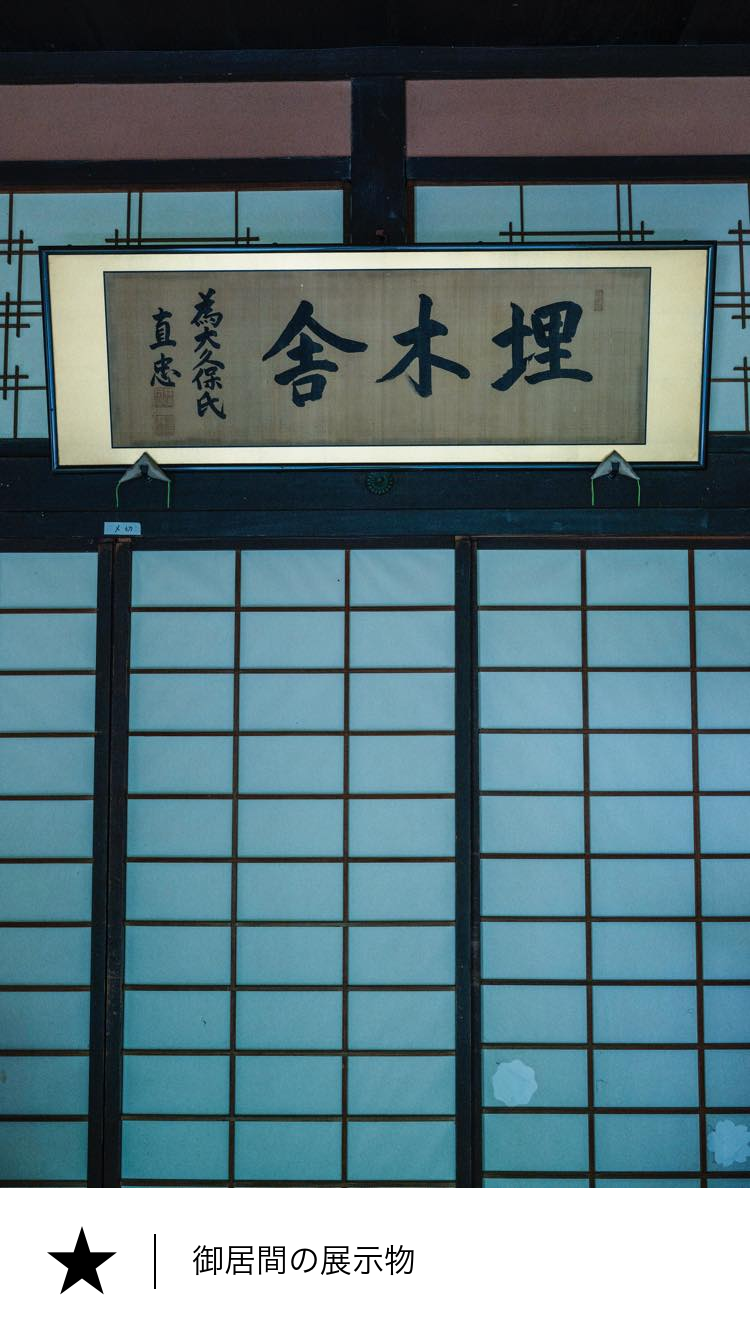 埋木舎
為大久保氏
直忠
〆切
御居間の展示物